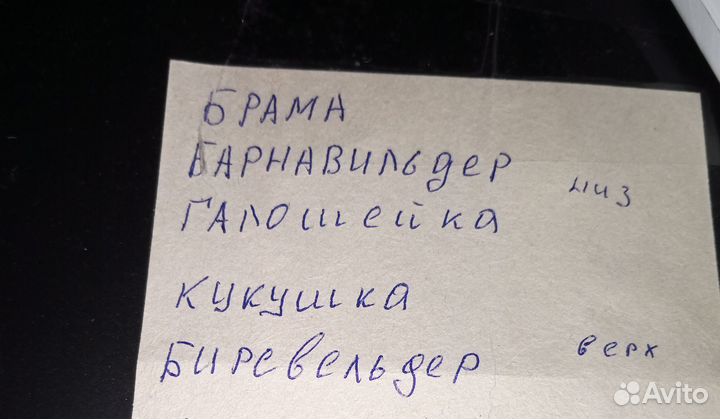 БРАМА
БАРНАВИЛЬДЕР
низ
ГАЛОШЕЙКА
КУКУШКА
БИРЕВЕЛЬДЕР
верх
Avito